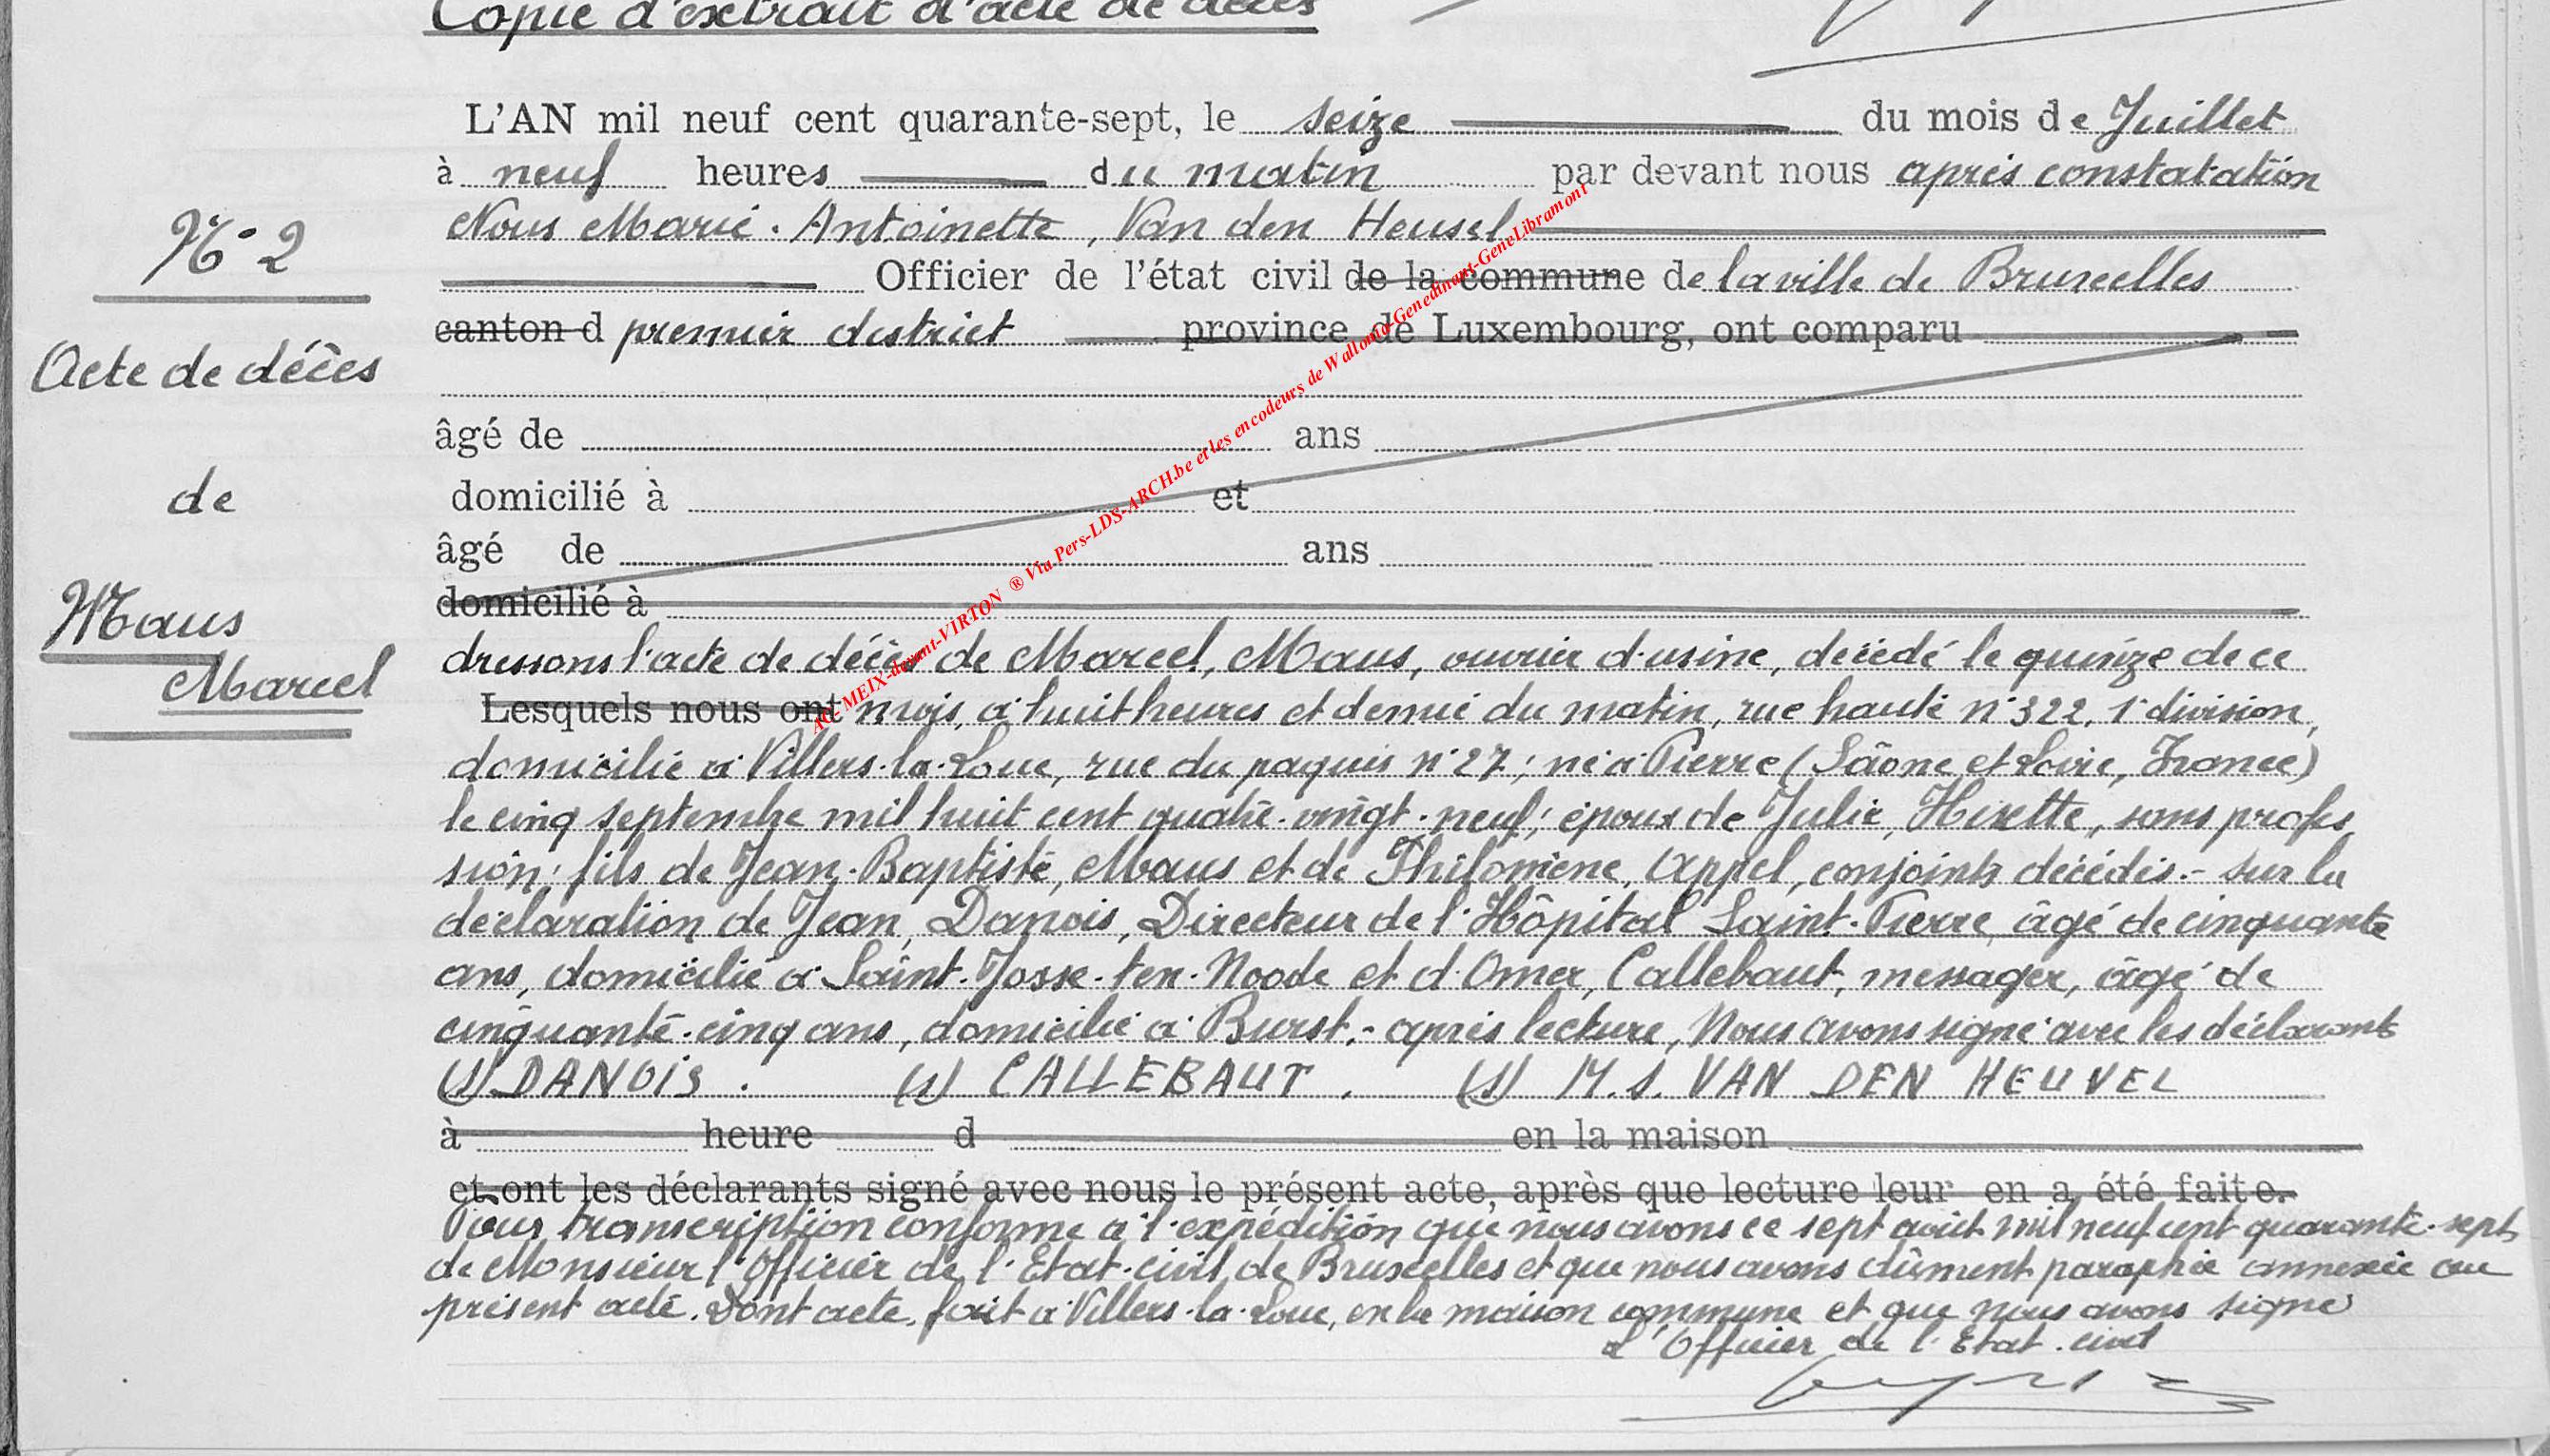 Copie d'extrait d'acte de décès
L'AN mil neuf cent quarante-sept, le seize du mois de Juillet
à neuf heures du matin par devant nous après constatation
Nous Marie-Antoinette, Van den Heuvel
Officier de l'état civil de la commune de la ville de Bruxelles
canton d premier district province de Luxembourg, ont comparu
âgé de ans
domicilié à et
âgé de ans
domicilié à
dressons l'acte de décès de Marcel, Maus, ouvrier d'usine, décédé le quinze de ce
Lesquels nous ont mois, à huit heures et demie du matin, rue haute n°322, 1e division,
domicilié à Villers-la-Loue, rue du paquis n°27; né à Pierre (Saône et Loire, France)
le cinq septembre mil huit cent quatre-vingt-neuf; époux de Julie, Hixette, sans profes
sion; fils de Jean-Baptiste, Maus et de Philomène, Appel, conjoints décédés.- sur la
déclaration de Jean, Danois, Directeur de l'Hôpital Saint-Pierre, âgé de cinquante
ans, domicilié à Saint-Josse-ten-Noode et d'Omer, Callebaut, messager, âgé de
cinquante-cinq ans, domicilié à Burst.- après lecture, Nous avons signé avec les déclarants
(s) DANOIS. (s) CALLEBAUT. (s) M.A. VAN DEN HEUVEL
à heure d en la maison
et ont les déclarants signé avec nous le présent acte, après que lecture leur en a été faite.
Pour transcription conforme à l'expédition que nous avons ce sept août mil neuf cent quarante-sept
de Monsieur l'Officier de l'Etat-civil de Bruxelles et que nous avons dûment paraphée annexée au
présent acte. Dont acte, fait à Villers-la-Loue, en la maison commune et que nous avons signé
L'Officier de l'Etat-civil
N° 2
Acte de décès
de
Maus
Marcel
AC- MEIX-devant-VIRTON ® Via Pers-LDS-ARCH.be et les encodeurs de Wallonia-Genedinant-GeneLibramont